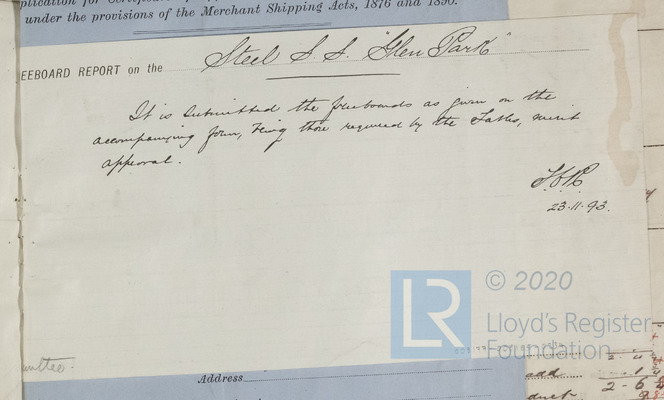 plication for Certific
under the provisions of the Merchant Shipping Acts, 1876 and 1890.
EEBOARD REPORT on the Steel S.S. "Glen Park"
It is submitted the freeboards as given on the
accompanying form, being those required by the Tables, merit
approval.
23.11.93.
LR
© 2020
Lloyd's Register
Foundation
mittee.
Address
add 1 4
2-6
duct